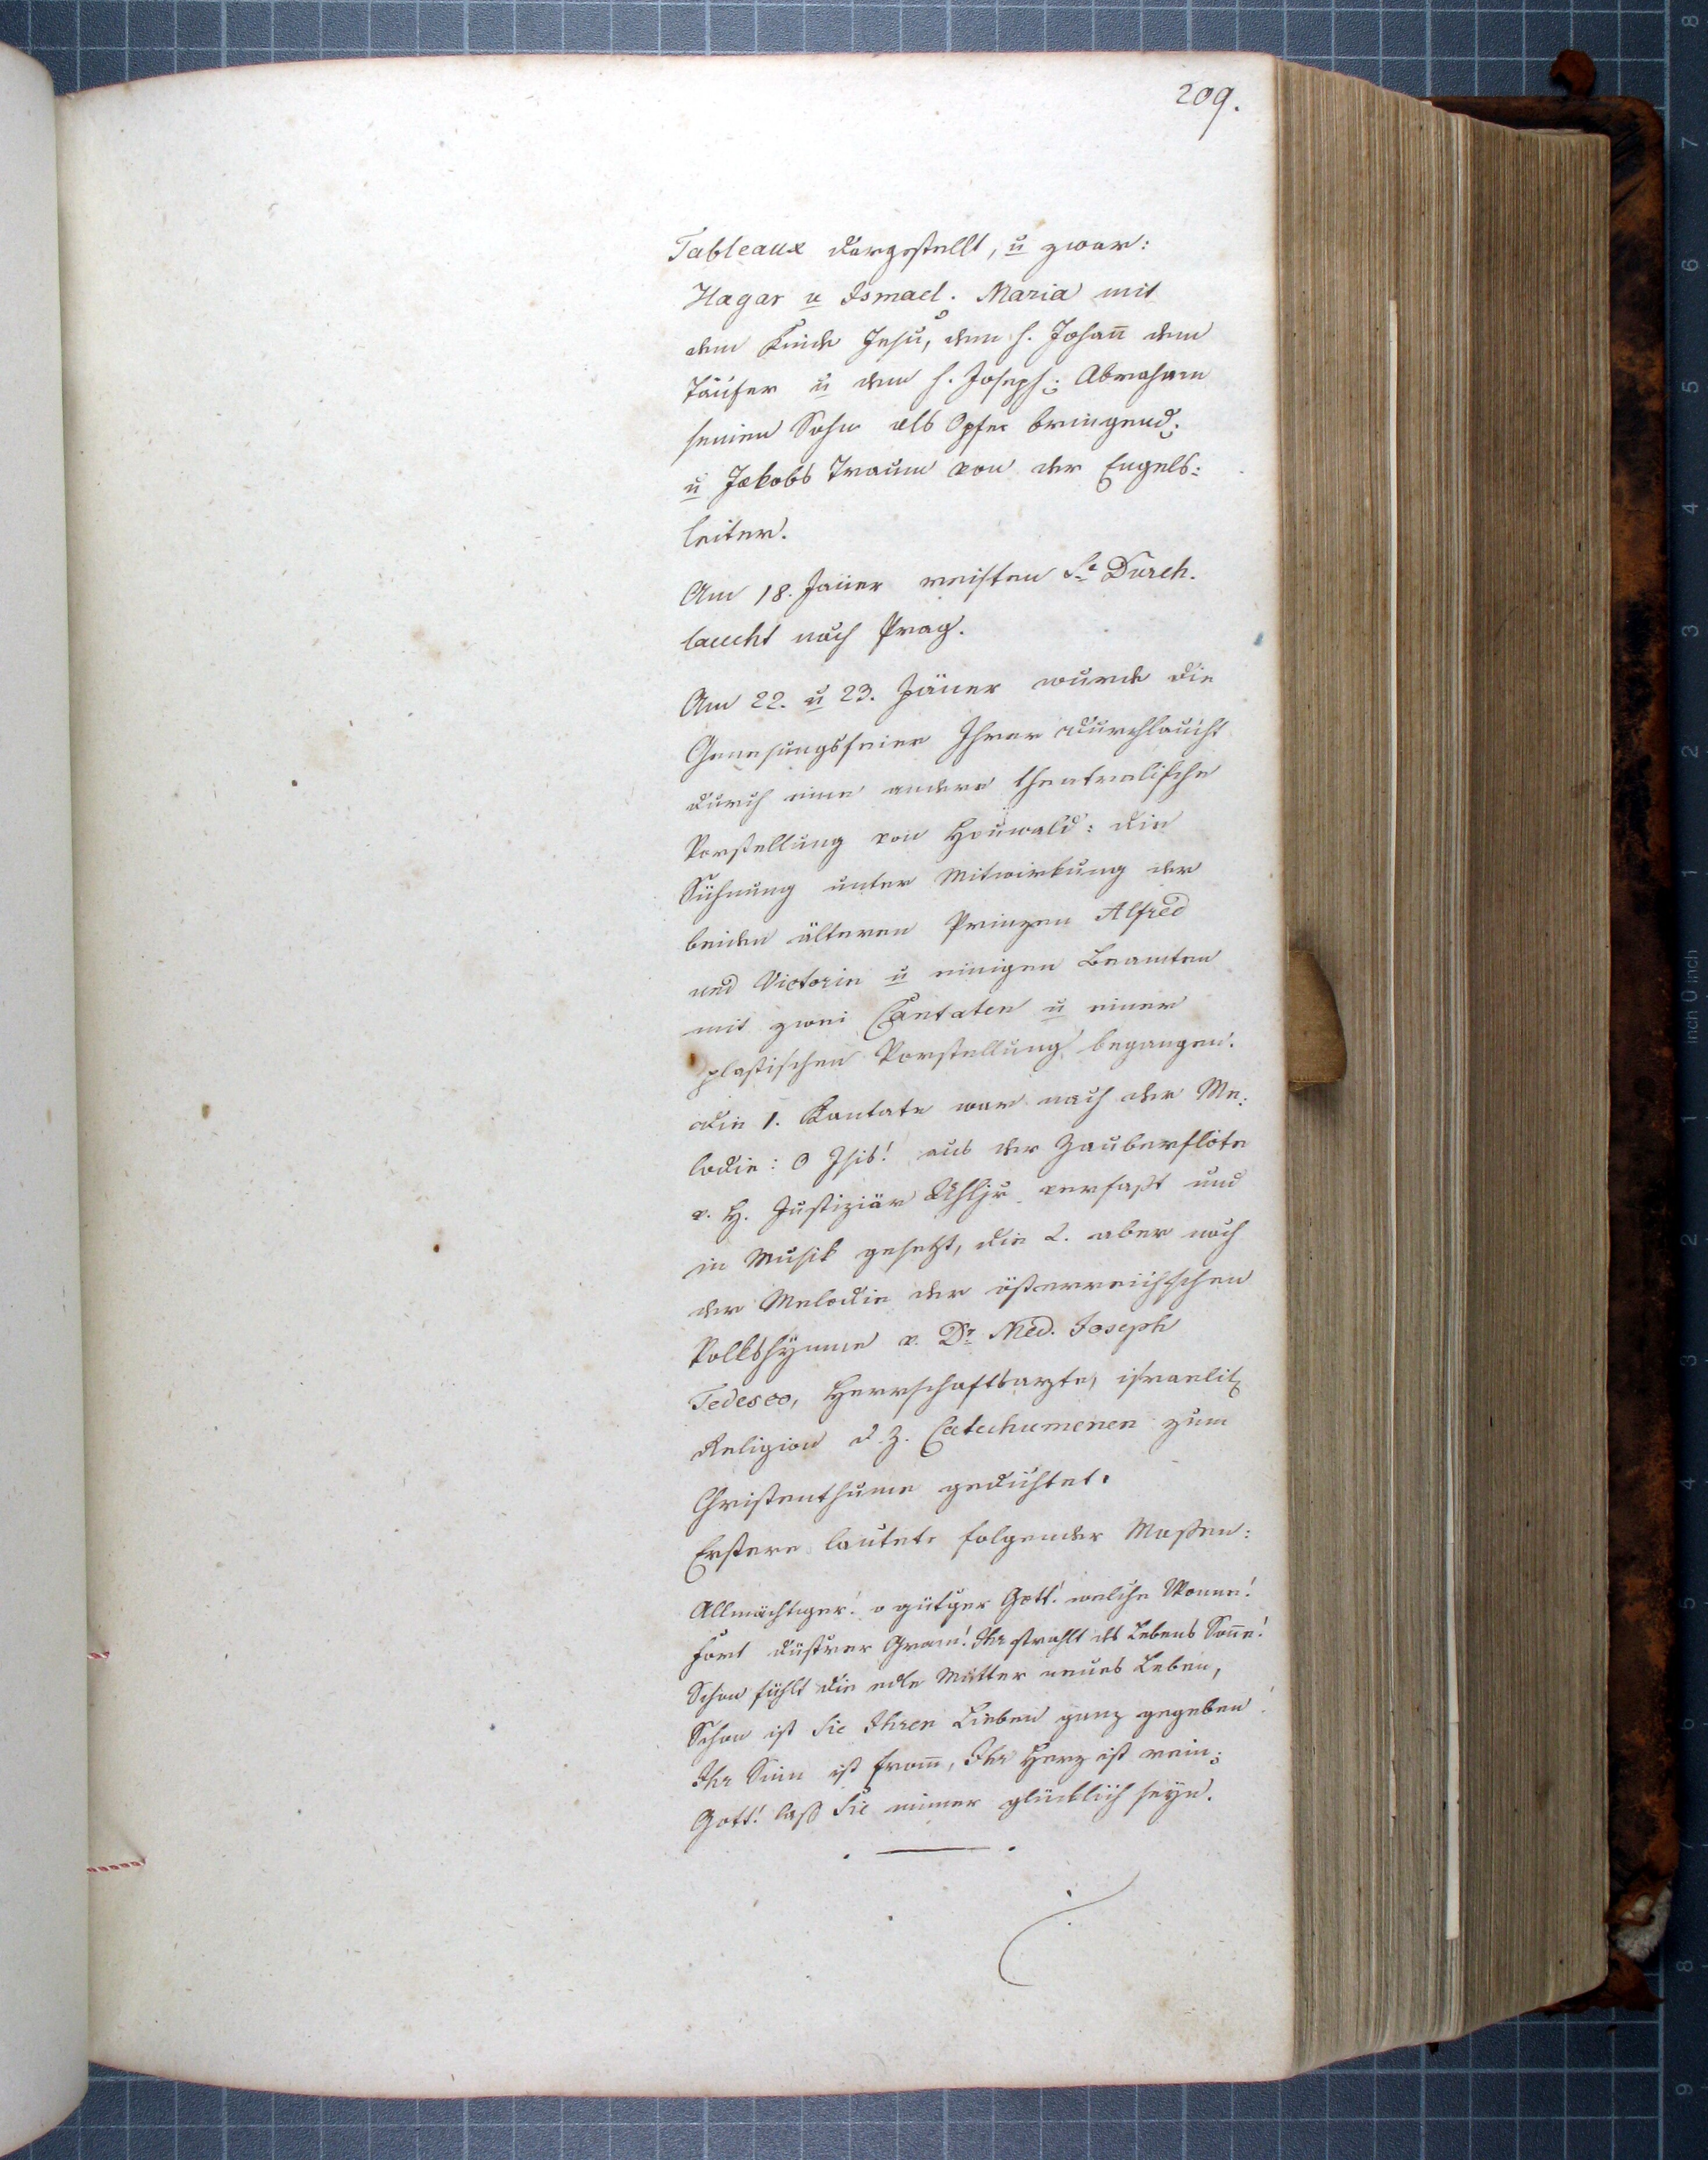 209.
Tableaux dargestellt, u zwar:
Hagar u Ismael. Maria mit
dem Kinde Jesu, dem h. Johañ dem
Täufer u dem h. Joseph; Abraham
seinen Sohn als Opfer bringend;
u Jakobs Traum von der Engels:
leiter.
Am 18. Jäner reisten Se Durch.
laucht nach Prag.
Am 22. u 23. Jäner wurde die
Genesungsfeier Ihrer Durchlaucht
durch eine andere theatralische
Vorstellung von Houwald: die
Sühnung unter Mitwirkung der
beiden älteren Prinzen Alfred
und Victorin u einigen Beamten
mit zwei Cantaten u einer
plastischen Vorstellung begangen.
Die 1. Kantate war nach der Me:
lodie: O Isis! aus der Zauberflöte
v. H. Justiziär verfaßt und
in Musik gesetzt, die 2. aber nach
der Melodie der österreichischen
Volkshymne v. Dr Med. Joseph
Tedesco, Herrschaftsarzte, israelit
Religion d. Z. Catechumenen zum
Christenthume gedichtet.
Erstere lautete folgender Maßen:
Allmächtiger! o gütger Gott! welche Wonne!
Fort düstrer Gram! Ihr strahlt des Lebens Soñe!
Schon fühlt die edle Mutter neues Leben,
Schon ist Sie Ihren Lieben ganz gegeben!
Ihr Sinn ist from̄, Ihr Herz ist rein;
Gott! laß Sie immer glücklich seyn.
inch 0 inch
8
7
6
5
4
3
2
1
1
2
3
4
5
6
7
8
9